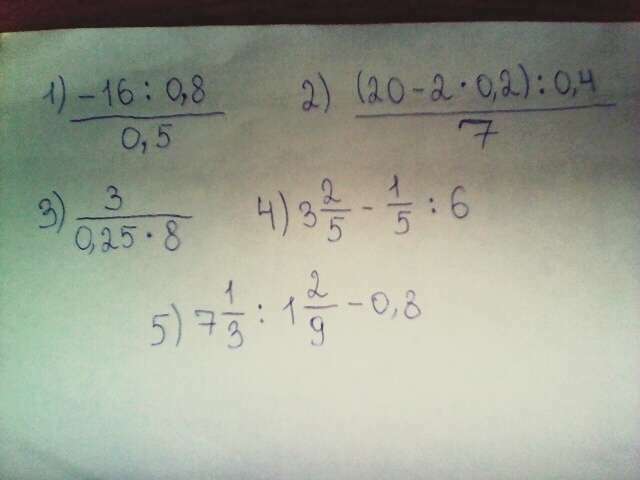 1) −16 : 0,8 / 0,5
2) (20 − 2 · 0,2) : 0,4 / 7
3) 3 / 0,25 · 8
4) 3 2/5 − 1/5 : 6
5) 7 1/3 : 1 2/9 − 0,8